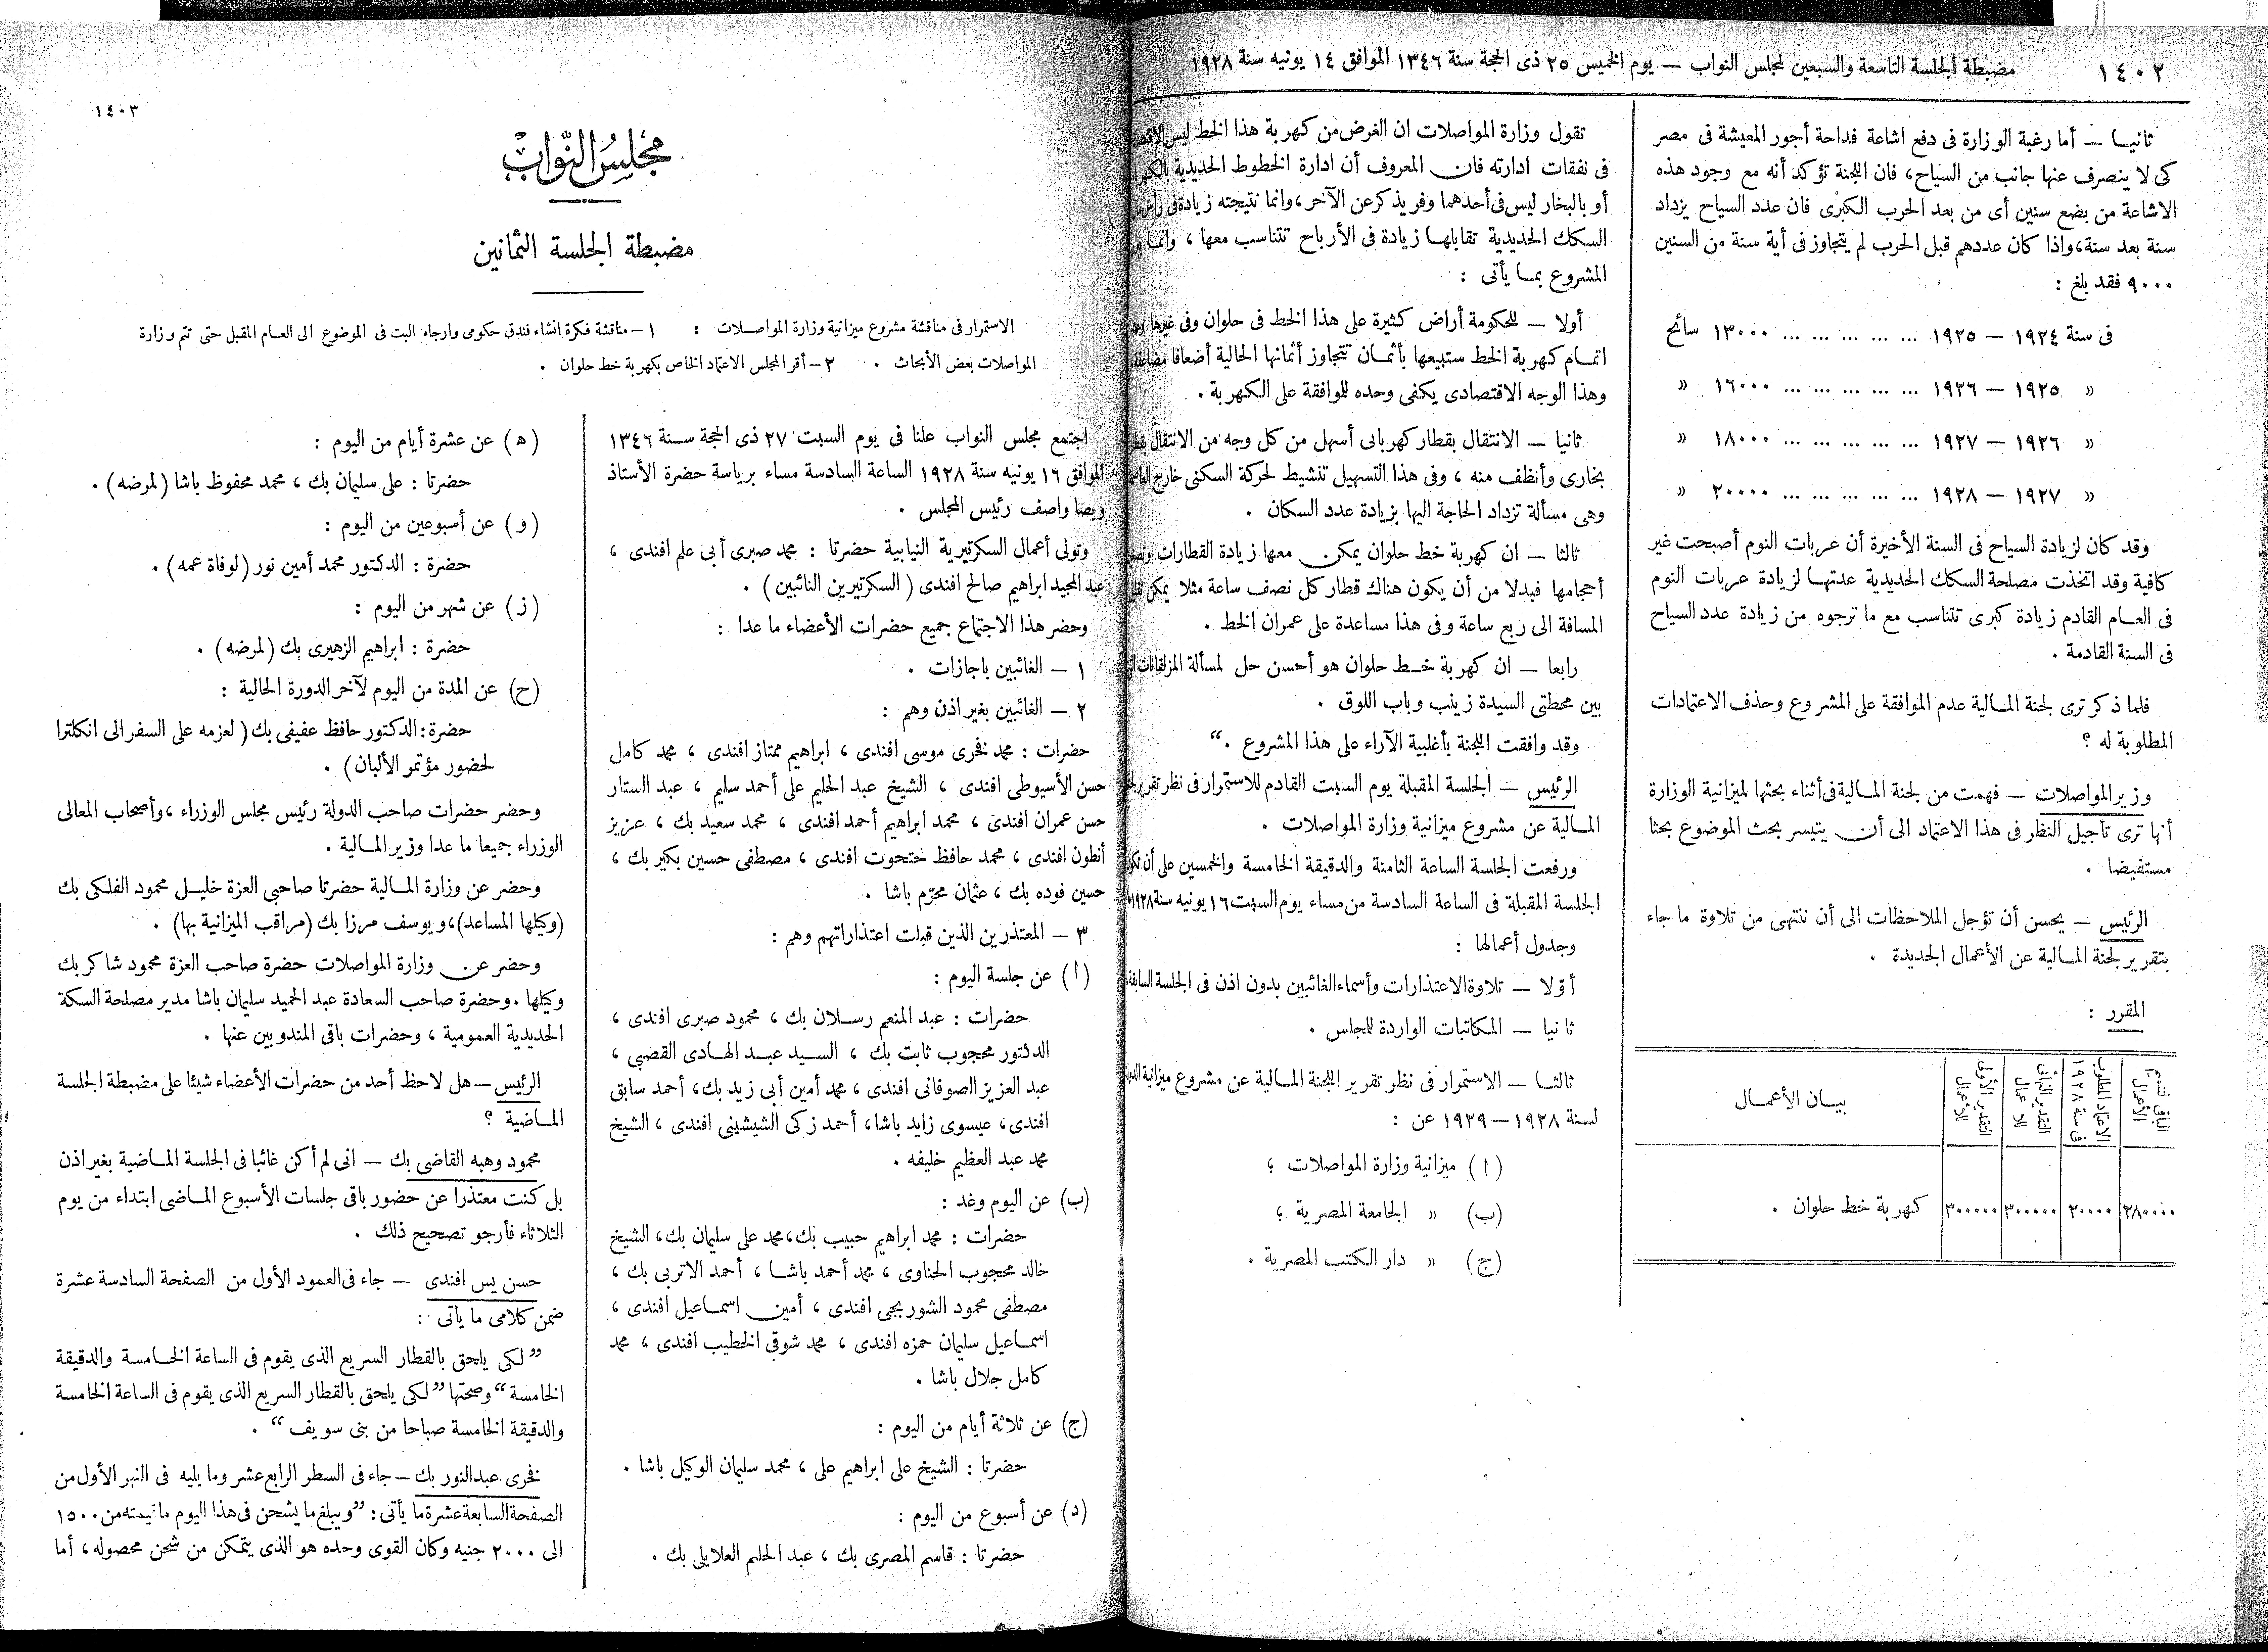 ١٤٠٢
مضبطة الجلسة التاسعة والسبعين لمجلس النواب — يوم الخميس ٢٥ ذى الحجة سنة ١٣٤٦ الموافق ١٤ يونيه سنة ١٩٢٨
ثانيا — أما رغبة الوزارة فى دفع اشاعة فداحة أجور المعيشة فى مصر
كى لا ينصرف عنها جانب من السياح، فان اللجنة تؤكد أنه مع وجود هذه
الاشاعة من بضع سنين أى من بعد الحرب الكبرى فان عدد السياح يزداد
سنة بعد سنة، واذا كان عددهم قبل الحرب لم يتجاوز فى أية سنة من السنين
٩٠٠٠ فقد بلغ :
فى سنة ١٩٢٤ — ١٩٢٥ ... ... ... ... ... ١٣٠٠٠ سائح
« ١٩٢٥ — ١٩٢٦ ... ... ... ... ... ١٦٠٠٠ «
« ١٩٢٦ — ١٩٢٧ ... ... ... ... ... ١٨٠٠٠ «
« ١٩٢٧ — ١٩٢٨ ... ... ... ... ... ٢٠٠٠٠ «
وقد كان لزيادة السياح فى السنة الأخيرة أن عربات النوم أصبحت غير
كافية وقد اتخذت مصلحة السكك الحديدية عدتها لزيادة عربات النوم
فى العام القادم زيادة كبرى تتناسب مع ما ترجوه من زيادة عدد السياح
فى السنة القادمة .
فلما ذكر ترى لجنة المالية عدم الموافقة على المشروع وحذف الاعتمادات
المطلوبة له ؟
وزير المواصلات — فهمت من لجنة المالية فى أثناء بحثها لميزانية الوزارة
أنها ترى تأجيل النظر فى هذا الاعتماد الى أن يتيسر بحث الموضوع بحثا
مستفيضا .
الرئيس — يحسن أن تؤجل الملاحظات الى أن ننتهى من تلاوة ما جاء
بتقرير لجنة المالية عن الأعمال الجديدة .
المقرر :
بيان الأعمال
التقدير الأولى للأعمال
التقدير النهائى
الاعتماد المطلوب فى سنة ١٩٢٨
الباقى لتتميم الأعمال
كهربة خط حلوان . ٣٠٠٠٠٠ ٣٠٠٠٠٠ ٢٠٠٠٠ ٢٨٠٠٠٠
تقول وزارة المواصلات ان الغرض من كهربة هذا الخط ليس
فى نفقات ادارته فان المعروف أن ادارة الخطوط الحديدية
أو بالبخار ليس فى أحدهما وفر يذكر عن الآخر، وانما نتيجته زيادة فى رأس
السكك الحديدية تقابلها زيادة فى الأرباح تتناسب معها ، وانما
المشروع بما يأتى :
أولا — للحكومة أراض كثيرة على هذا الخط فى حلوان وفى غيرها
اتمام كهربة الخط ستبيعها بأثمان تتجاوز أثمانها الحالية أضعافا مضاعفة،
وهذا الوجه الاقتصادى يكفى وحده للموافقة على الكهربة .
ثانيا — الانتقال بقطار كهربائى أسهل من كل وجه من الانتقال
بخارى وأنظف منه ، وفى هذا التسهيل تنشيط لحركة السكنى خارج
وهى مسألة تزداد الحاجة اليها بزيادة عدد السكان .
ثالثا — ان كهربة خط حلوان يمكن معها زيادة القطارات
أحجامها فبدلا من أن يكون هناك قطار كل نصف ساعة مثلا يمكن
المسافة الى ربع ساعة وفى هذا مساعدة على عمران الخط .
رابعا — ان كهربة خط حلوان هو أحسن حل لمسألة المزلقانات
بين محطتى السيدة زينب وباب اللوق .
وقد وافقت اللجنة بأغلبية الآراء على هذا المشروع .“
الرئيس — الجلسة المقبلة يوم السبت القادم للاستمرار فى نظر تقرير
المالية عن مشروع ميزانية وزارة المواصلات .
ورفعت الجلسة الساعة الثامنة والدقيقة الخامسة والخمسين على أن
الجلسة المقبلة فى الساعة السادسة من مساء يوم السبت ١٦ يونيه سنة ١٩٢٨
وجدول أعمالها :
أولا — تلاوة الاعتذارات وأسماء الغائبين بدون اذن فى الجلسة السابقة.
ثانيا — المكاتبات الواردة للمجلس .
ثالثا — الاستمرار فى نظر تقرير اللجنة المالية عن مشروع ميزانية
لسنة ١٩٢٨ — ١٩٢٩ عن :
(ا) ميزانية وزارة المواصلات ؛
(ب) « الجامعة المصرية ؛
(ج) « دار الكتب المصرية .
١٤٠٣
مجلس النواب
مضبطة الجلسة الثمانين
الاستمرار فى مناقشة مشروع ميزانية وزارة المواصلات : ١ — مناقشة فكرة انشاء فندق حكومى وارجاء البت فى الموضوع الى العام المقبل حتى تتم وزارة
المواصلات بعض الأبحاث . ٢ — أقر المجلس الاعتماد الخاص بكهربة خط حلوان .
اجتمع مجلس النواب علنا فى يوم السبت ٢٧ ذى الحجة سنة ١٣٤٦
الموافق ١٦ يونيه سنة ١٩٢٨ الساعة السادسة مساء برياسة حضرة الأستاذ
ويصا واصف رئيس المجلس .
وتولى أعمال السكرتيرية النيابية حضرتا : محمد صبرى أبى علم افندى ،
عبد المجيد ابراهيم صالح افندى (السكرتيرين النائبين) .
وحضر هذا الاجتماع جميع حضرات الأعضاء ما عدا :
١ — الغائبين باجازات .
٢ — الغائبين بغير اذن وهم :
حضرات : محمد فخرى موسى افندى ، ابراهيم ممتاز افندى ، محمد كامل
حسن الأسيوطى افندى ، الشيخ عبد الحليم على أحمد سليم ، عبد الستار
حسن عمران افندى ، محمد ابراهيم أحمد افندى ، محمد سعيد بك ، عزيز
أنطون افندى ، محمد حافظ حتحوت افندى ، مصطفى حسين بكير بك ،
حسين فوده بك ، عثمان محرّم باشا .
٣ — المعتذرين الذين قبلت اعتذاراتهم وهم :
(أ) عن جلسة اليوم :
حضرات : عبد المنعم رسلان بك ، محمود صبرى افندى ،
الدكتور محجوب ثابت بك ، السيد عبد الهادى القصبى ،
عبد العزيز الصوفانى افندى ، محمد أمين أبى زيد بك، أحمد سابق
افندى، عيسوى زايد باشا، أحمد زكى الشيشينى افندى ، الشيخ
محمد عبد العظيم خليفه .
(ب) عن اليوم وغد :
حضرات : محمد ابراهيم حبيب بك، محمد على سليمان بك، الشيخ
خالد محجوب الحناوى ، محمد أحمد باشا ، أحمد الاتربى بك ،
مصطفى محمود الشوربجى افندى ، أمين اسماعيل افندى ،
اسماعيل سليمان حمزه افندى ، محمد شوقى الخطيب افندى ، محمد
كامل جلال باشا .
(ج) عن ثلاثة أيام من اليوم :
حضرتا : الشيخ على ابراهيم على ، محمد سليمان الوكيل باشا .
(د) عن أسبوع من اليوم :
حضرتا : قاسم المصرى بك ، عبد الحليم العلايلى بك .
(ه) عن عشرة أيام من اليوم :
حضرتا : على سليمان بك ، محمد محفوظ باشا (لمرضه) .
(و) عن أسبوعين من اليوم :
حضرة : الدكتور محمد أمين نور (لوفاة عمه) .
(ز) عن شهر من اليوم :
حضرة : ابراهيم الزهيرى بك (لمرضه) .
(ح) عن المدة من اليوم لآخر الدورة الحالية :
حضرة : الدكتور حافظ عفيفى بك (لعزمه على السفر الى انكلترا
لحضور مؤتمر الألبان) .
وحضر حضرات صاحب الدولة رئيس مجلس الوزراء ، وأصحاب المعالى
الوزراء جميعا ما عدا وزير المالية .
وحضر عن وزارة المالية حضرتا صاحبى العزة خليل محمود الفلكى بك
(وكيلها المساعد)، ويوسف مرزا بك (مراقب الميزانية بها) .
وحضر عن وزارة المواصلات حضرة صاحب العزة محمود شاكر بك
وكيلها . وحضرة صاحب السعادة عبد الحميد سليمان باشا مدير مصلحة السكة
الحديدية العمومية ، وحضرات باقى المندوبين عنها .
الرئيس — هل لاحظ أحد من حضرات الأعضاء شيئا على مضبطة الجلسة
الماضية ؟
محمود وهبه القاضى بك — انى لم أكن غائبا فى الجلسة الماضية بغير اذن
بل كنت معتذرا عن حضور باقى جلسات الأسبوع الماضى ابتداء من يوم
الثلاثاء فأرجو تصحيح ذلك .
حسن يس افندى — جاء فى العمود الأول من الصفحة السادسة عشرة
ضمن كلامى ما يأتى :
”لكى يلحق بالقطار السريع الذى يقوم فى الساعة الخامسة والدقيقة
الخامسة“ وصحتها ”لكى يلحق بالقطار السريع الذى يقوم فى الساعة الخامسة
والدقيقة الخامسة صباحا من بنى سويف“ .
فخرى عبد النور بك — جاء فى السطر الرابع عشر وما يليه فى النهر الأول من
الصفحة السابعة عشرة ما يأتى : ”ويبلغ ما يشحن فى هذا اليوم ما قيمته من ١٥٠٠
الى ٢٠٠٠ جنيه وكان القوى وحده هو الذى يتمكن من شحن محصوله ، أما